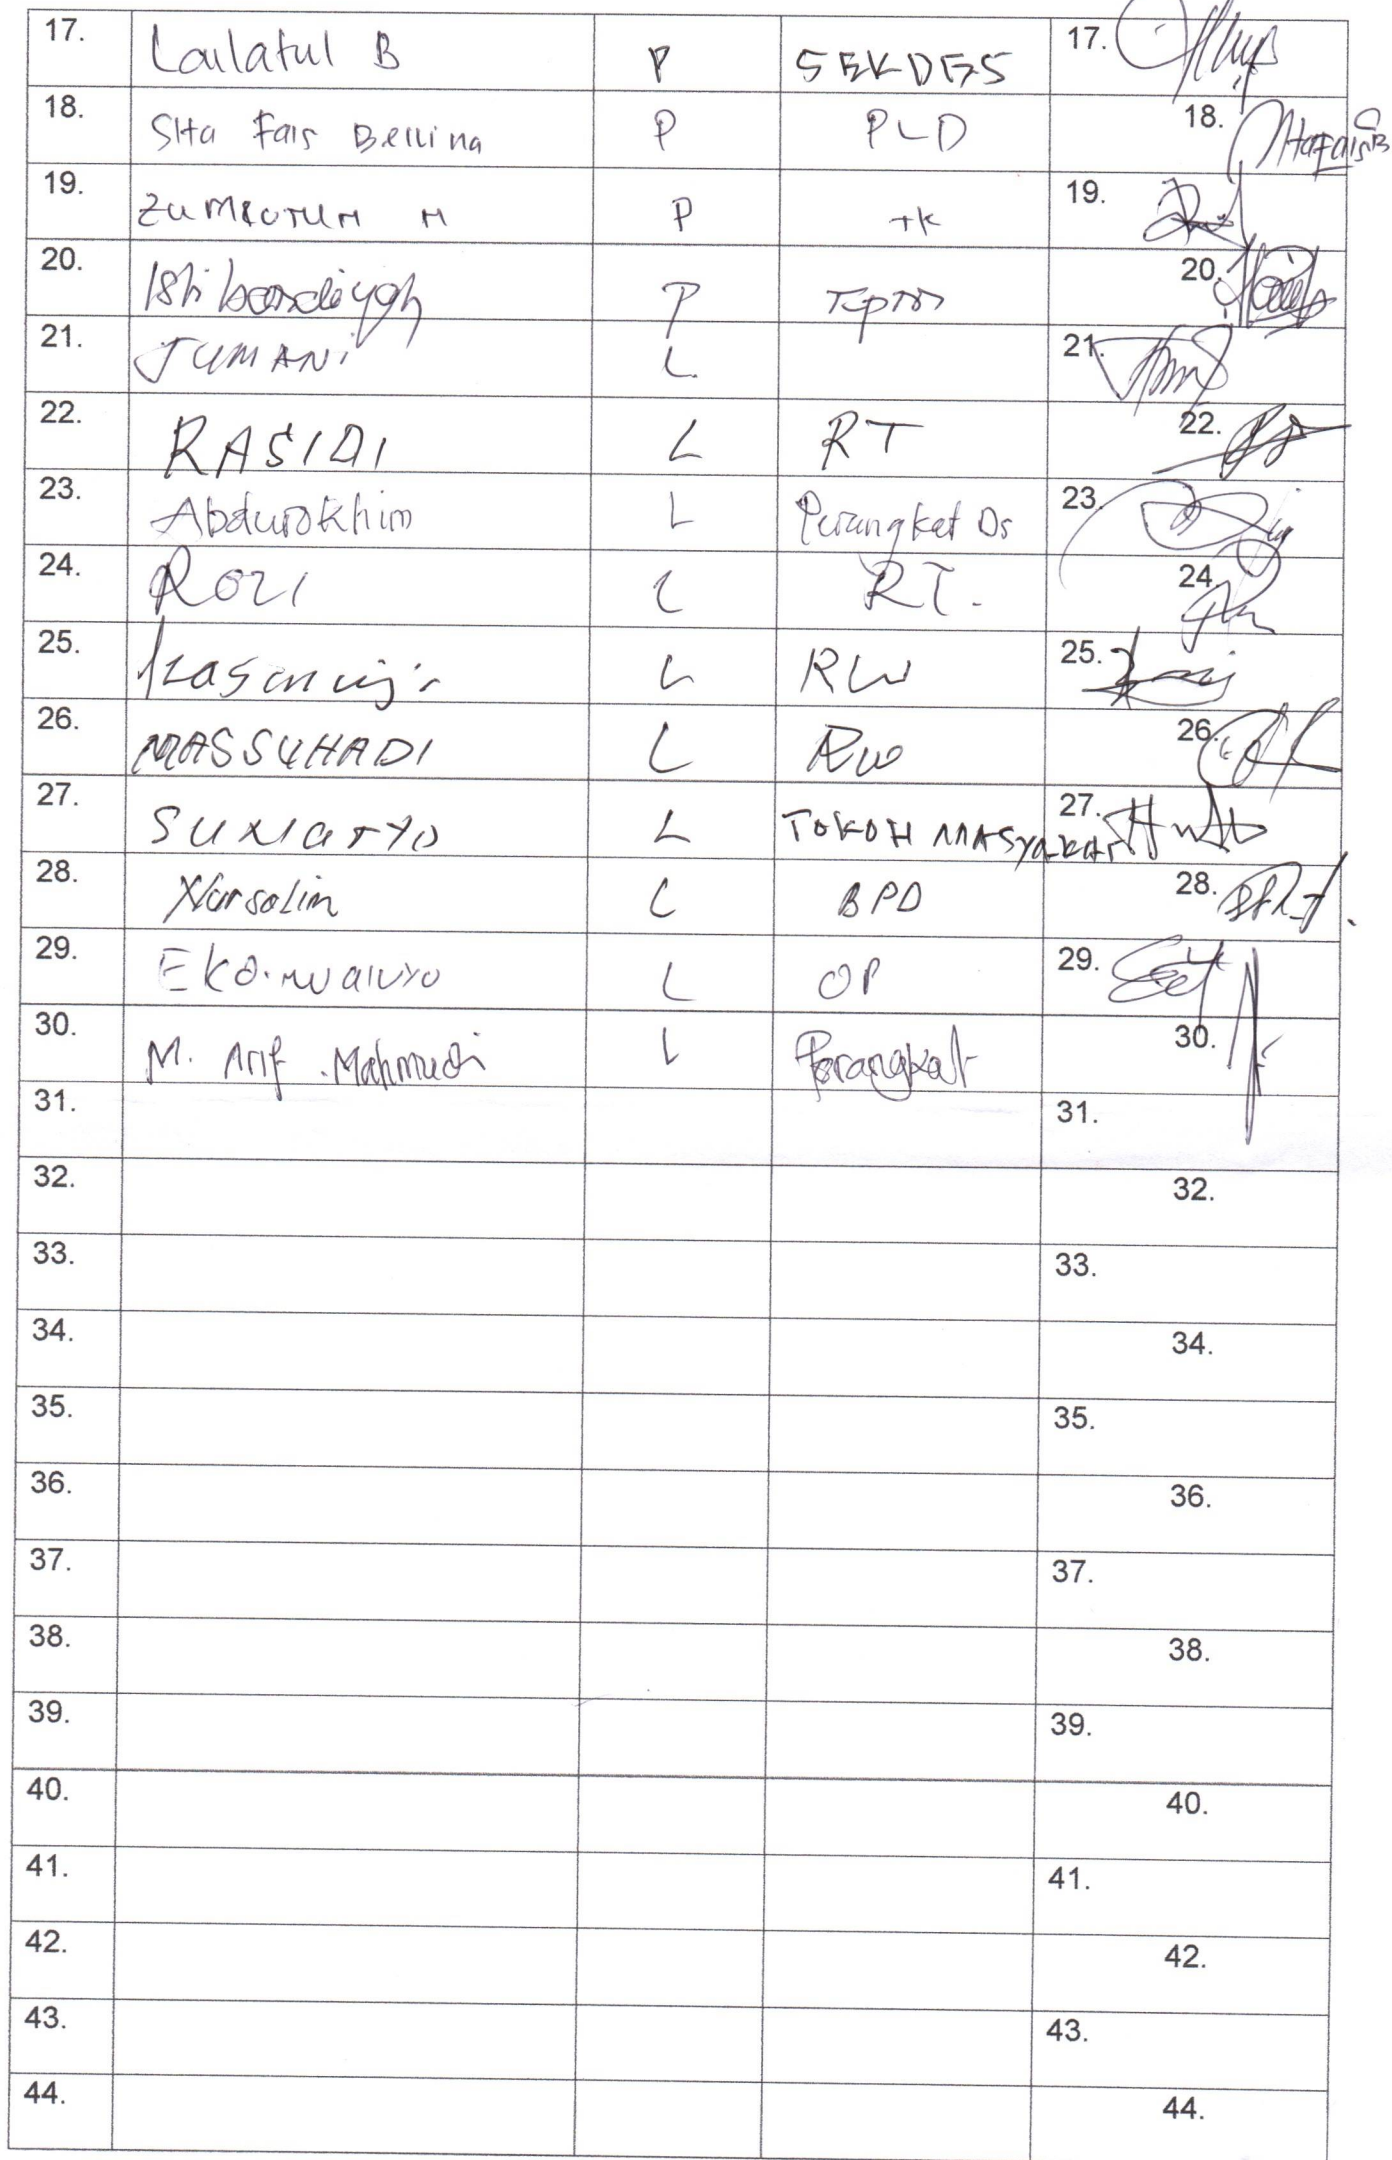 17. Lailatul B P SEKDES 17.
18. Sita Fais Bellina P PLD 18.
19. ZUMROTUN N P TK 19.
20. P 20.
21. JUMANI L 21.
22. RASIDI L RT 22.
23. Abdurokhim L Perangket Ds 23.
24. ROZI L RT. 24.
25. L RW 25.
26. MASSUHADI L RW 26.
27. SUNARYO L TOKOH MASYAKAT 27.
28. Nursalim L BPD 28.
29. EKO. WALUYO L OP 29.
30. M. Arif . Mahmudi L Perangkat 30.
31. 31.
32. 32.
33. 33.
34. 34.
35. 35.
36. 36.
37. 37.
38. 38.
39. 39.
40. 40.
41. 41.
42. 42.
43. 43.
44. 44.